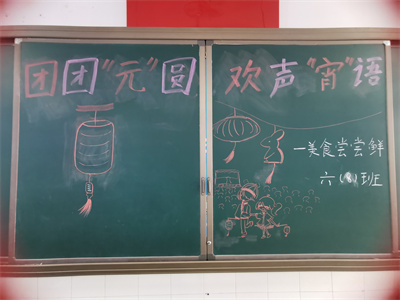 团团"元"圆 欢声"宵"语
一美食尝尝鲜
六(8)班